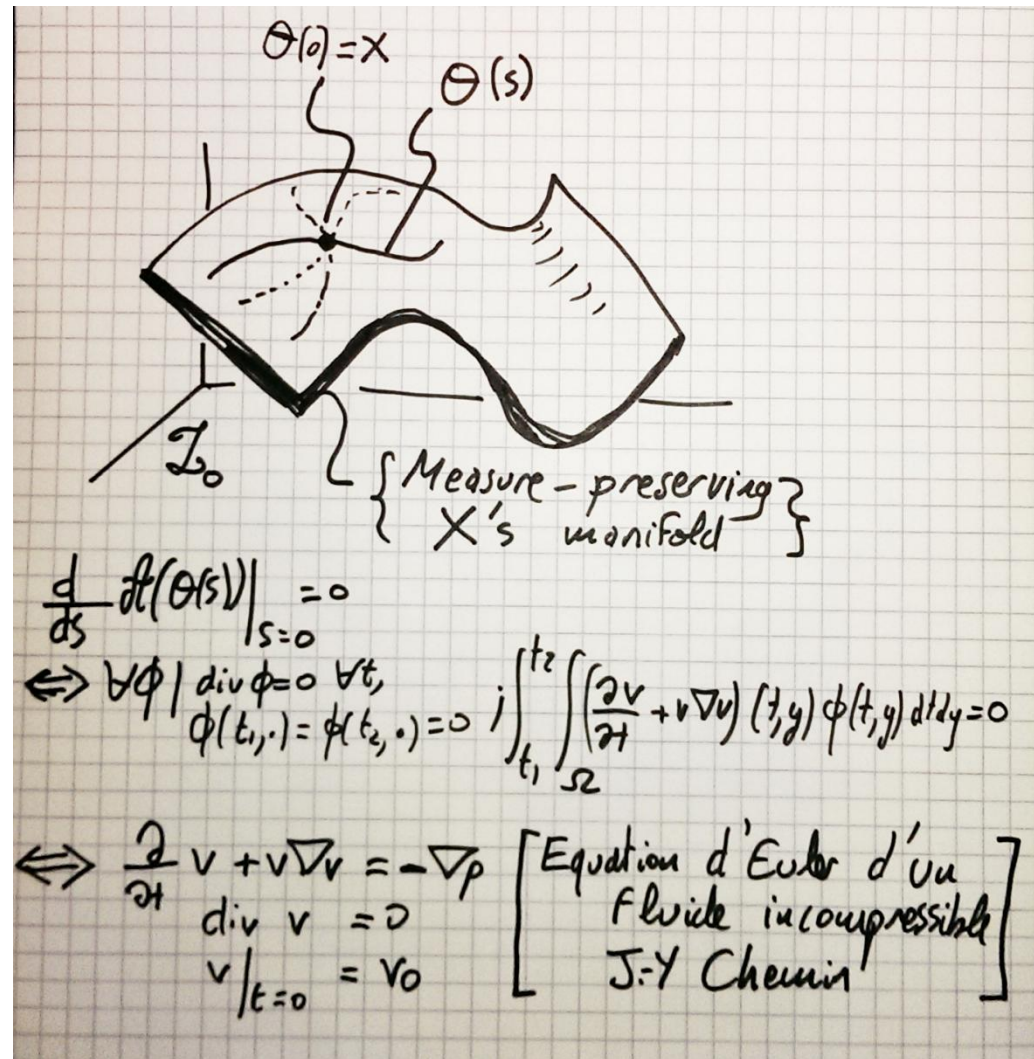 Θ(0)=X
Θ(s)
I₀
{Measure-preserving}
{X's manifold}
d/ds A(Θ(s))|s=0 =0
⟺ ∀ϕ | div ϕ=0 ∀t,
ϕ(t₁,·)=ϕ(t₂,·)=0 ; ∫_{t₁}^{t₂} ∫_Ω (∂v/∂t + v∇v)(t,y) ϕ(t,y) dtdy=0
⟺ ∂/∂t v + v∇v = -∇p [Equation d'Euler d'un
div v = 0 fluide incompressible
v|t=0 = v₀ J-Y Chemin]